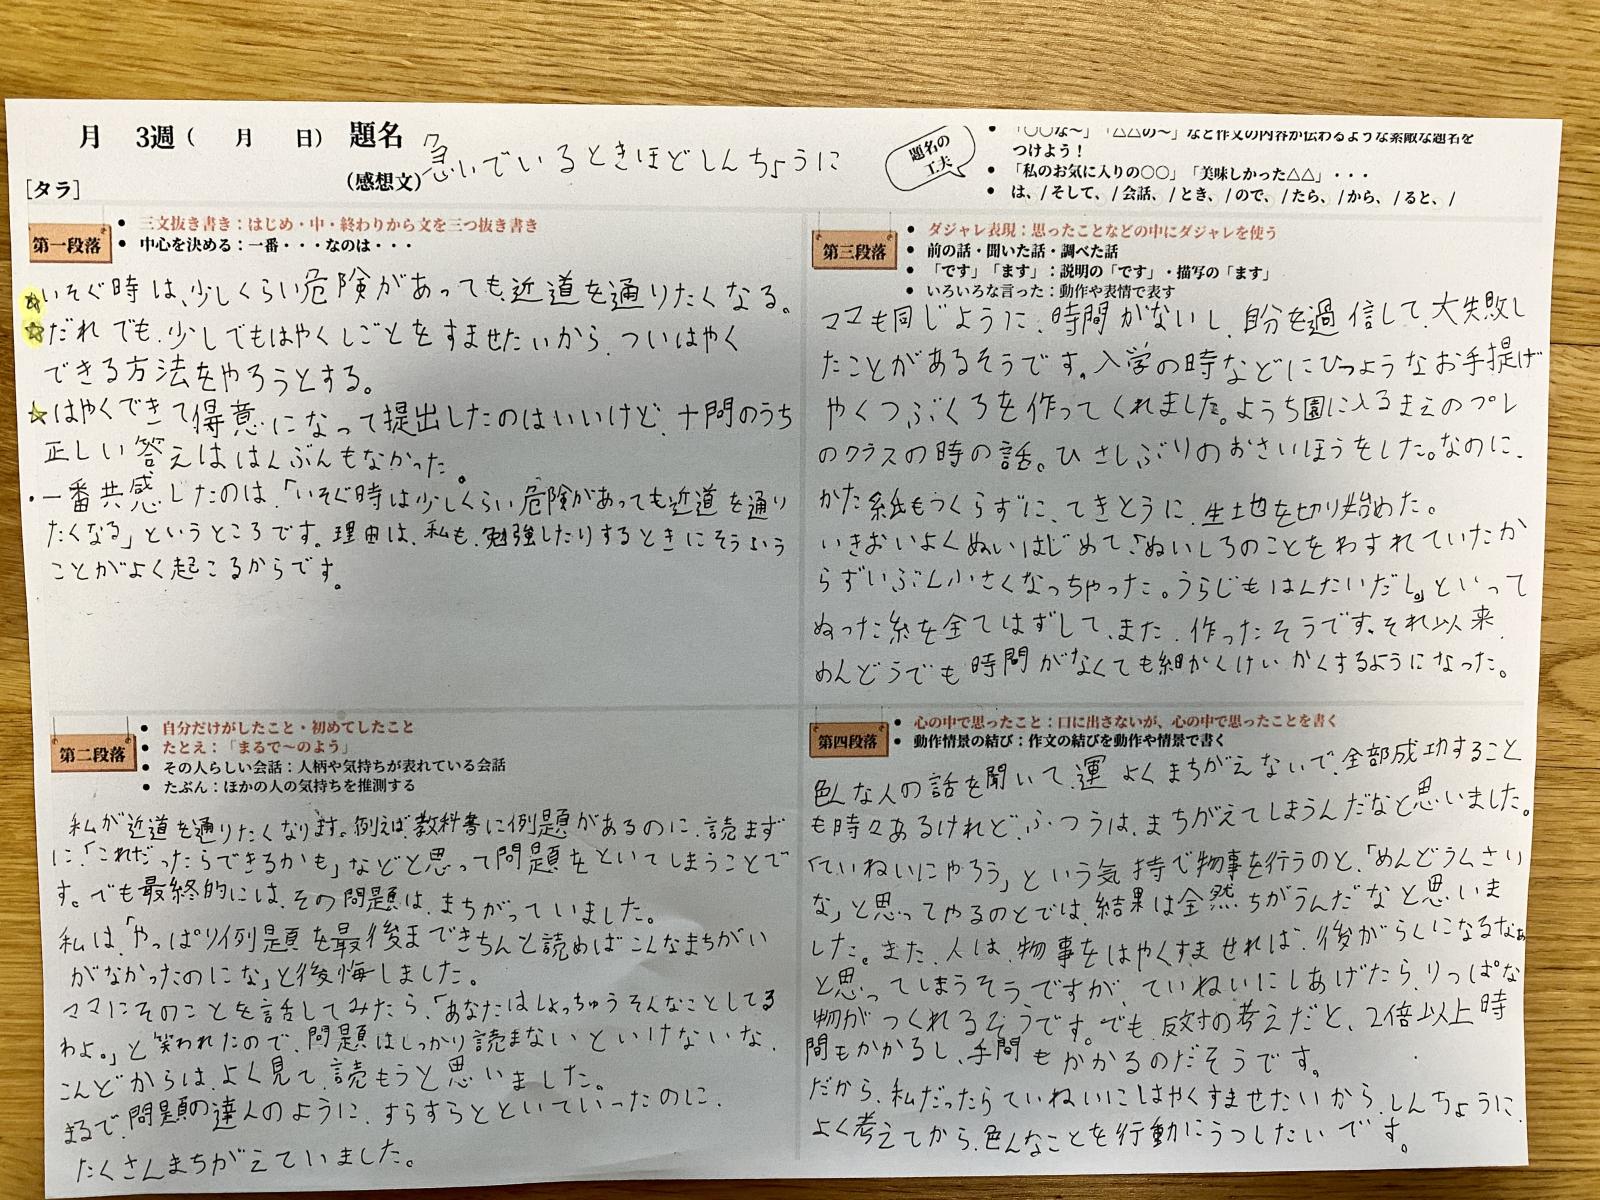 月 3週（ 月 日） 題名
（感想文）
急いでいるときほどしんちょうに
［タラ］
題名の
工夫
「○○な～」「△△の～」など作文の内容が伝わるような素敵な題名を
つけよう！
「私のお気に入りの○○」「美味しかった△△」・・・
は、/ そして、/ 会話、/ とき、/ ので、/ たら、/ から、/ ると、/
第一段落
三文抜き書き：はじめ・中・終わりから文を三つ抜き書き
中心を決める：一番・・・なのは・・・
☆いそぐ時は、少しくらい危険があっても、近道を通りたくなる。
☆だれでも、少しでもはやくしごとをすませたいから、ついはやく
できる方法をやろうとする。
☆はやくできて得意になって提出したのはいいけど、十問のうち
正しい答えははんぶんもなかった。
・一番共感したのは、「いそぐ時は少しくらい危険があっても近道を通り
たくなる」というところです。理由は、私も、勉強したりするときにそういう
ことがよく起こるからです。
第二段落
自分だけがしたこと・初めてしたこと
たとえ：「まるで～のよう」
その人らしい会話：人柄や気持ちが表れている会話
たぶん：ほかの人の気持ちを推測する
私が近道を通りたくなります。例えば、教科書に例題があるのに、読まず
に、「これだったらできるかも」などと思って問題をといてしまうことで
す。でも最終的には、その問題は、まちがっていました。
私は、「やっぱり例題を最後まできちんと読めばこんなまちがい
がなかったのにな」と後悔しました。
ママにそのことを話してみたら、「あなたはしょっちゅうそんなことしてる
わよ。」と笑われたので、問題はしっかり読まないといけないな、
こんどからは、よく見て、読もうと思いました。
まるで、問題の達人のように、すらすらとといていったのに、
たくさんまちがえていました。
第三段落
ダジャレ表現：思ったことなどの中にダジャレを使う
前の話・聞いた話・調べた話
「です」「ます」：説明の「です」・描写の「ます」
いろいろな言った：動作や表情で表す
ママも同じように、時間がないし、自分を過信して、大失敗し
たことがあるそうです。入学の時などにひつようなお手提げ
やくつぶくろを作ってくれました。ようち園に入るまえのプレ
のクラスの時の話。ひさしぶりのおさいほうをした。なのに、
かた紙もつくらずに、てきとうに、生地を切り始めた。
いきおいよくぬいはじめて「ぬいしろのことをわすれていたか
らずいぶん小さくなっちゃった。うらじもはんたいだし。」といって
ぬった糸を全てはずして、また、作ったそうです。それ以来、
めんどうでも時間がなくても細かくけいかくするようになった。
第四段落
心の中で思ったこと：口に出さないが、心の中で思ったことを書く
動作情景の結び：作文の結びを動作や情景で書く
色んな人の話を聞いて、運よくまちがえないで、全部成功すること
も時々あるけれど、ふつうは、まちがえてしまうんだなと思いました。
「ていねいにやろう」という気持で物事を行うのと、「めんどうくさい
な」と思ってやるのとでは、結果は全然ちがうんだなと思いま
した。また、人は、物事をはやくすませれば、後がらくになるなぁ
と思ってしまうそうですが、ていねいにしあげたら、りっぱな
物がつくれるそうです。でも、反対の考えだと、2倍以上時
間もかかるし、手間もかかるのだそうです。
だから、私だったらていねいにはやくすませたいから、しんちょうに、
よく考えてから、色んなことを行動にうつしたいです。